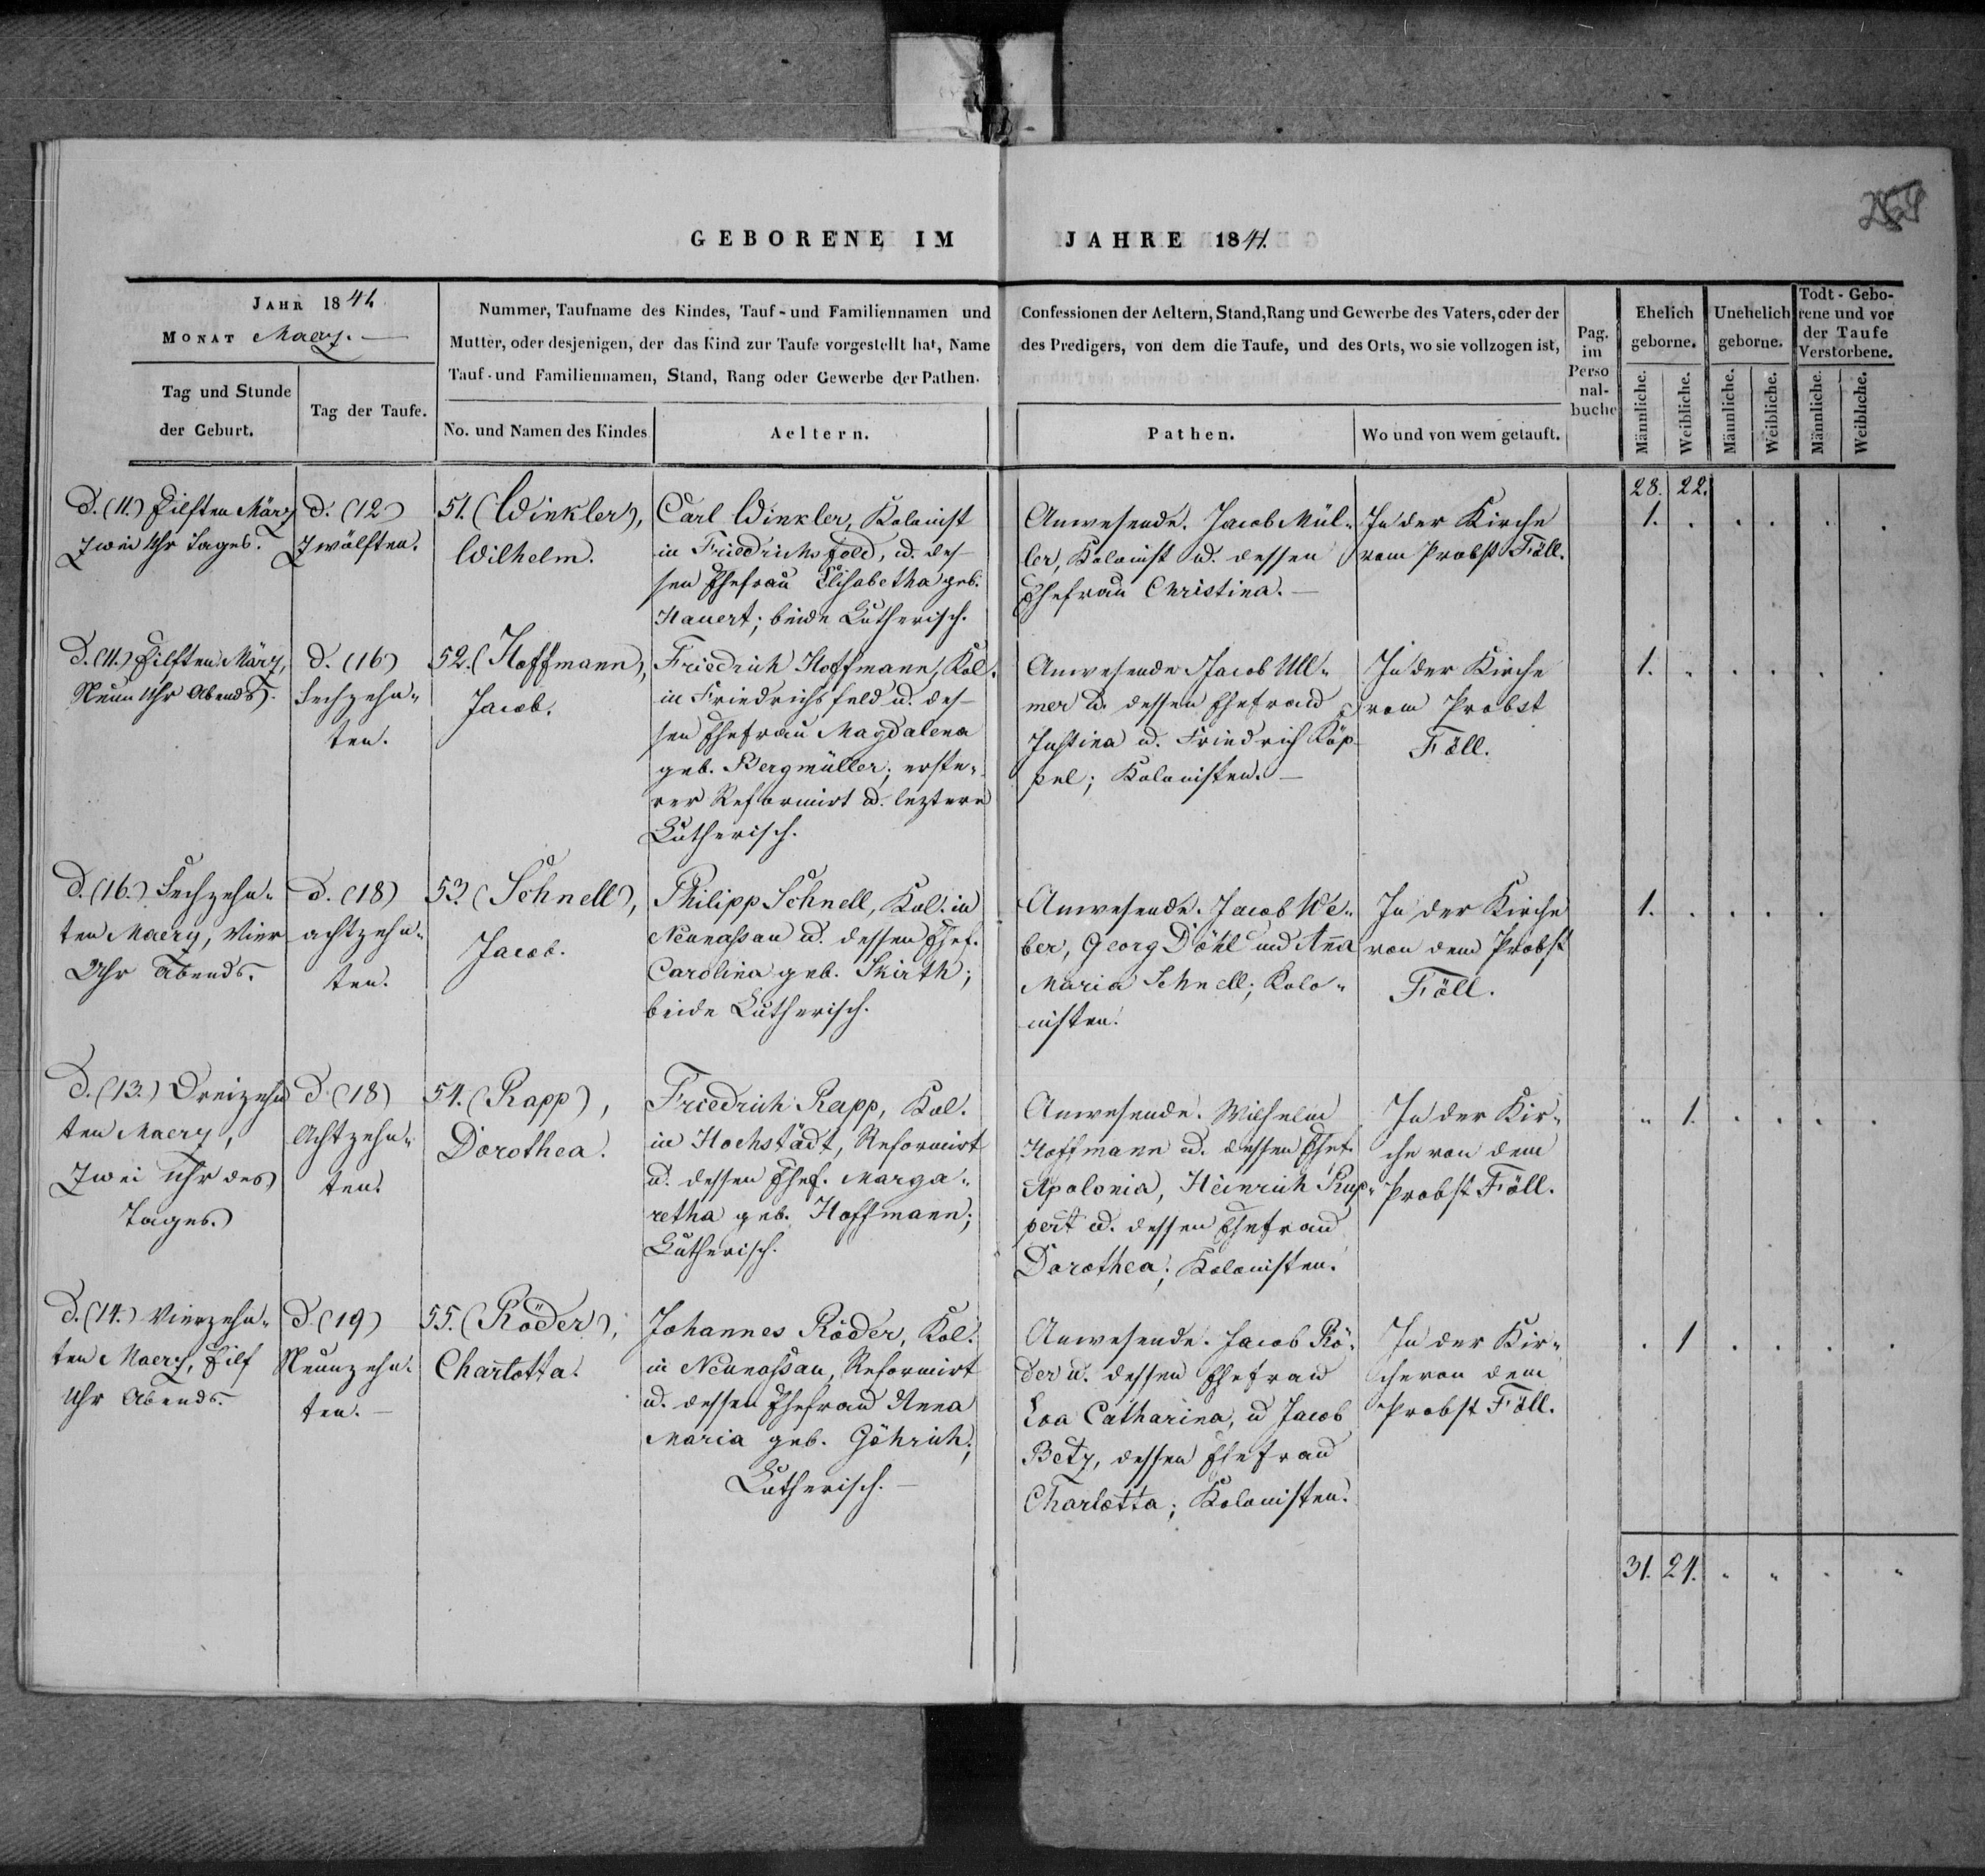 GEBORENE IM JAHRE 1841.
JAHR 1841.
MONAT Maerz.
Tag und Stunde
der Geburt.
Tag der Taufe.
Nummer, Taufname des Kindes, Tauf- und Familiennamen und
Mutter, oder desjenigen, der das Kind zur Taufe vorgestellt hat, Name
Tauf- und Familiennamen, Stand, Rang oder Gewerbe der Pathen.
No. und Namen des Kindes
Aeltern.
Confessionen der Aeltern, Stand, Rang und Gewerbe des Vaters, oder der
des Predigers, von dem die Taufe, und des Orts, wo sie vollzogen ist,
Pathen.
Wo und von wem getauft.
Pag.
im
Perso
nal-
buche
Ehelich
geborne.
Unehelich
geborne.
Todt-Gebo-
rene und vor
der Taufe
Verstorbene.
Männliche.
Weibliche.
Männliche.
Weibliche.
Männliche.
Weibliche.
28. 22.
D. (11.) Eilften März
Zwei Uhr Tages.
D. (12)
Zwölften.
51. (Winkler),
Wilhelm.
Carl Winkler, Kolonist
in Friedrichsfeld, u. des-
sen Ehefrau Elisabetha geb.
Hauert; beide Lutherisch.
Anwesende. Jacob Mül-
ler, Kolonist u. dessen
Ehefrau Christina. —
In der Kirche
vom Probst Föll.
1.
D. (11.) Eilften März,
Neun Uhr Abends.
D. (16)
Sechzehn-
ten.
52. (Hoffmann),
Jacob.
Friedrich Hoffmann, Kol.
in Friedrichsfeld u. des-
sen Ehefrau Magdalena
geb. Bergmüller; erste-
rer Reformirt u. leztere
Lutherisch.
Anwesende Jacob Ull-
mer u. dessen Ehefrau
Justina u. Friedrich Köp-
pel; Kolonisten. —
In der Kirche
vom Probst
Föll.
1.
D. (16.) Sechzehn-
ten Maerz, Vier
Uhr Abends.
D. (18)
achtzehn-
ten.
53. (Schnell),
Jacob.
Philipp Schnell, Kol. in
Neunassau u. dessen Ehef.
Carolina geb. Skirth;
beide Lutherisch.
Anwesende. Jacob We-
ber, Georg Döhl und Anna
Maria Schnell; Kolo-
nisten.
In der Kirche
von dem Probst
Föll.
1.
D. (13.) Dreizehn
ten Maerz,
Zwei Uhr des
Tages.
D. (18)
Achtzehn-
ten.
54. (Rapp),
Dorothea.
Friedrich Rapp, Kol.
in Hochstädt, Reformirt
u. dessen Ehef. Marga-
retha geb. Hoffmann;
Lutherisch.
Anwesende. Wilhelm
Hoffmann u. dessen Ehef.
Apolonia, Heinrich Rup-
pert u. dessen Ehefrau
Dorothea; Kolonisten.
In der Kir-
che von dem
Probst Föll.
1.
D. (14.) Vierzehn-
ten Maerz, Eilf
Uhr Abends.
D. (19)
Neunzehn-
ten. —
55. (Röder),
Charlotta.
Johannes Röder, Kol.
in Neunassau, Reformirt
u. dessen Ehefrau Anna
Maria geb. Göhrich;
Lutherisch. —
Anwesende. Jacob Rö-
der u. dessen Ehefrau
Eva Catharina, u Jacob
Betz, dessen Ehefrau
Charlotta; Kolonisten.
In der Kir-
che von dem
Probst Föll.
1
31. 24.